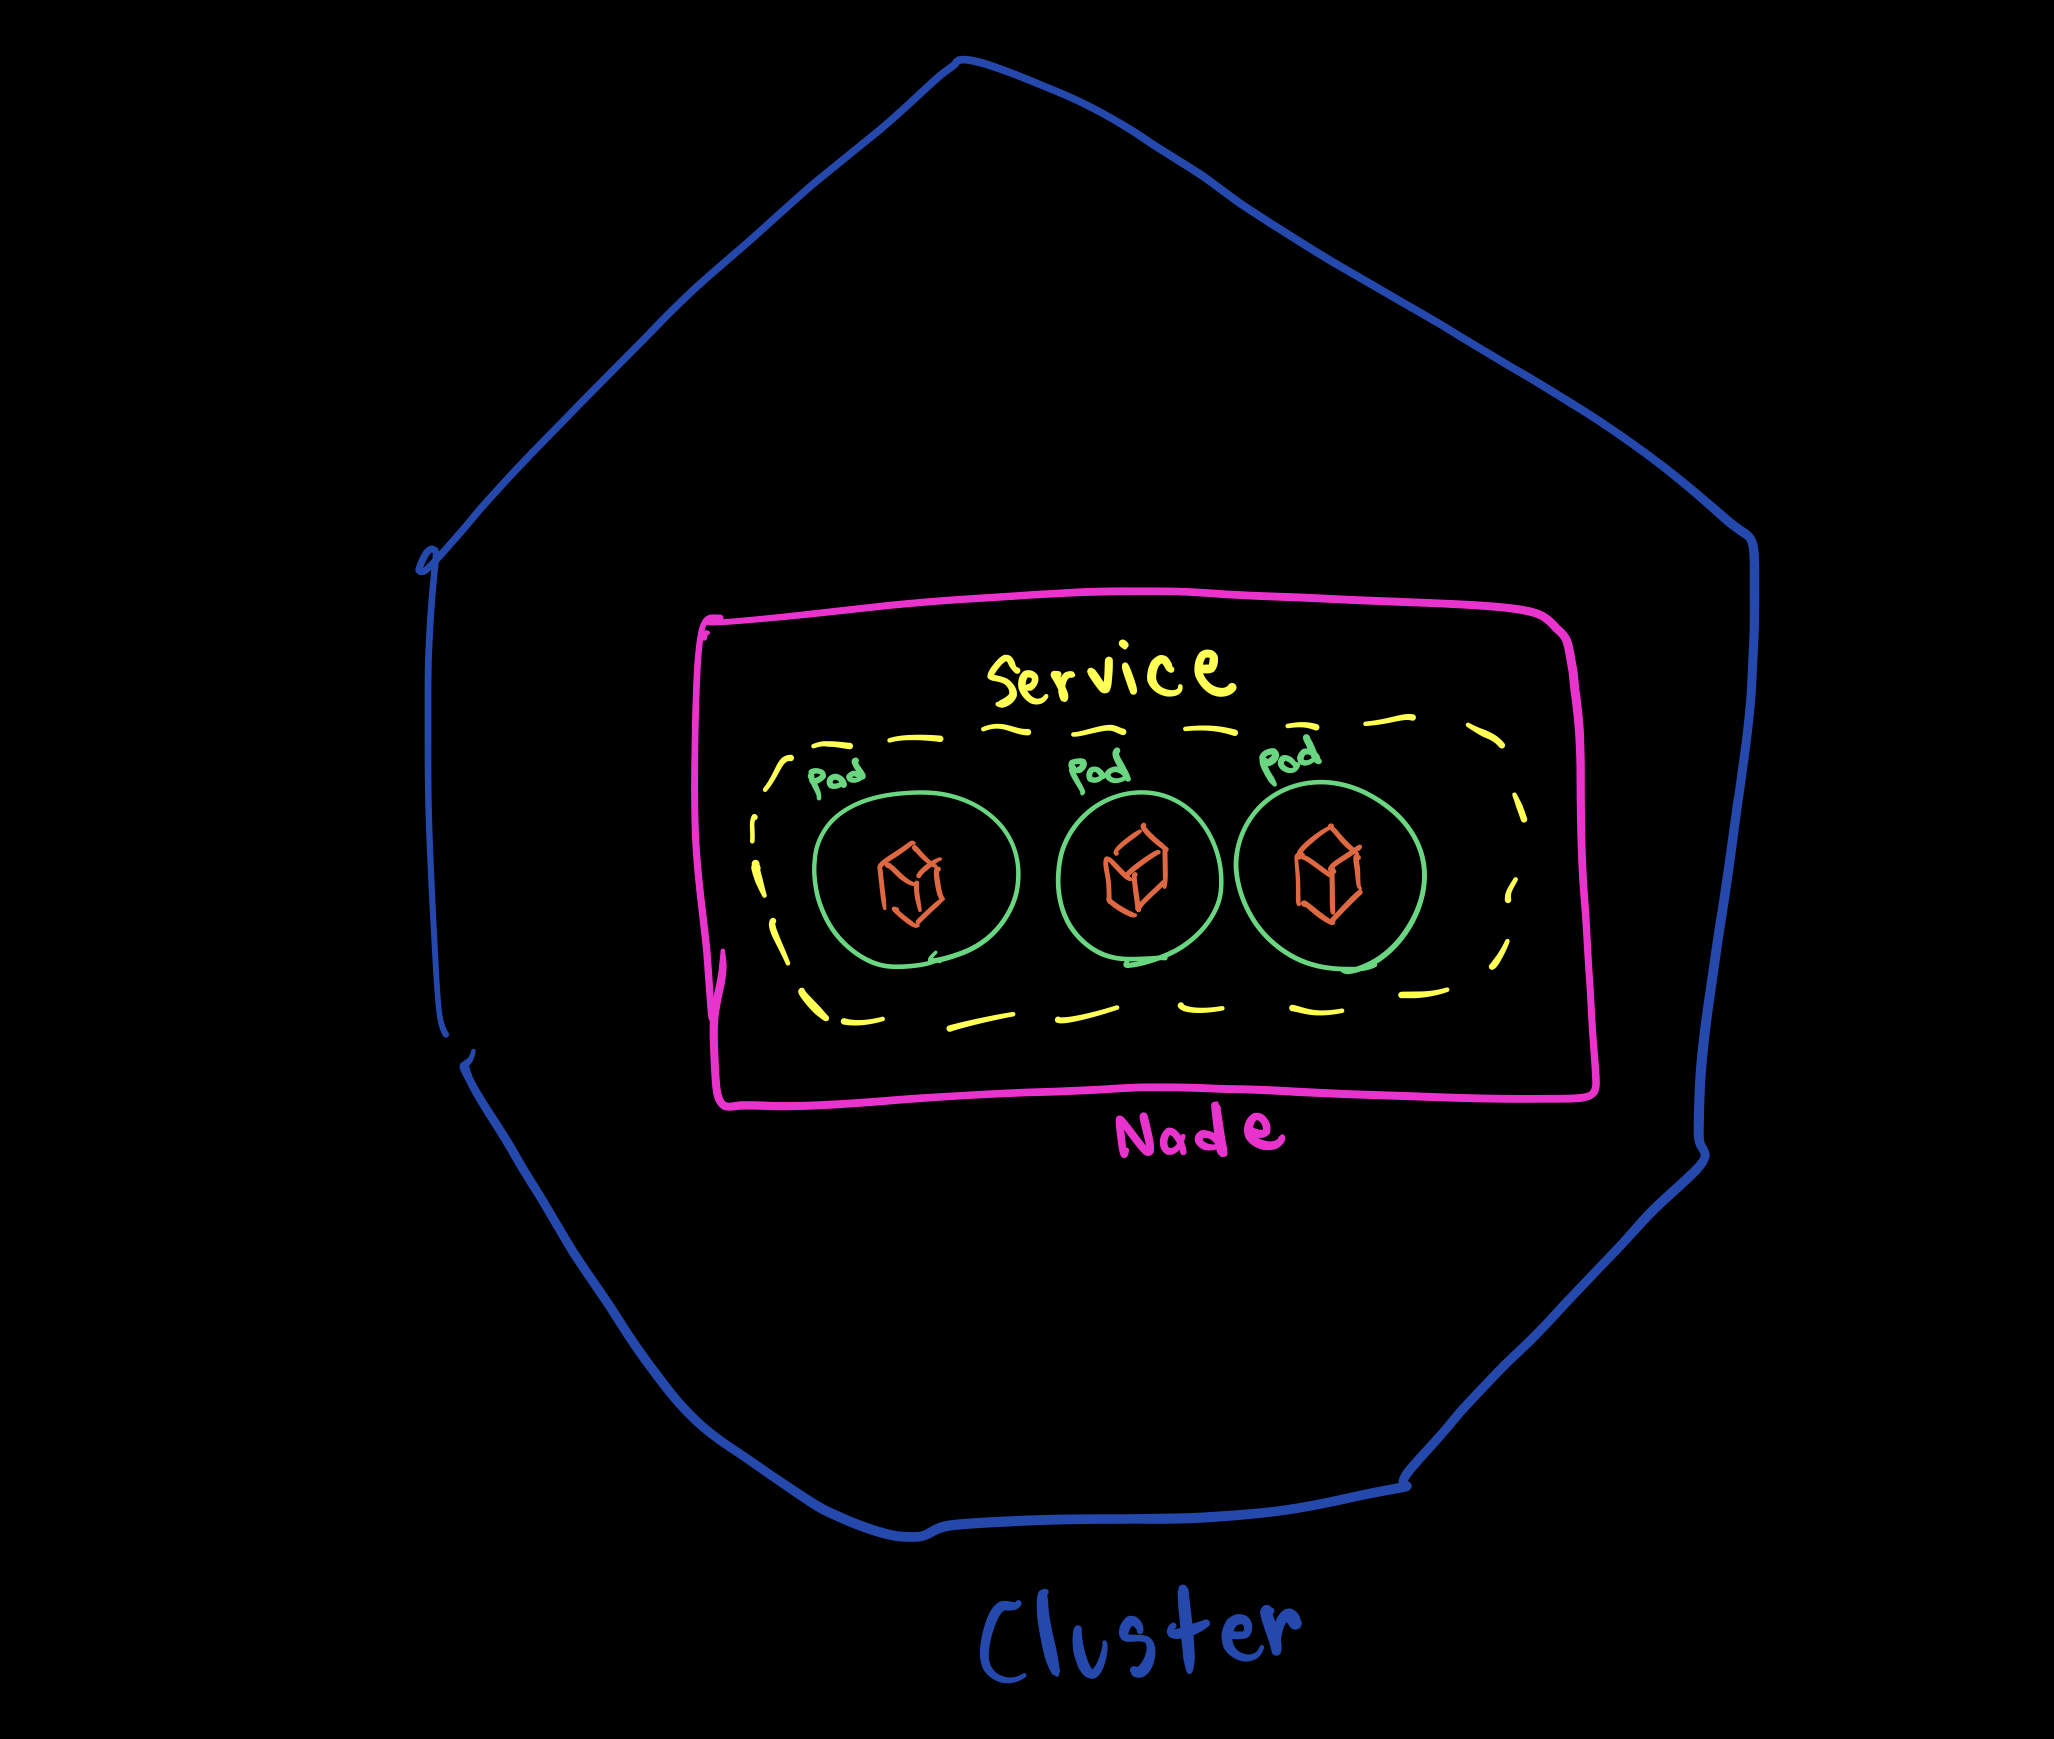 Service
Pod
Pod
Pod
Node
Cluster